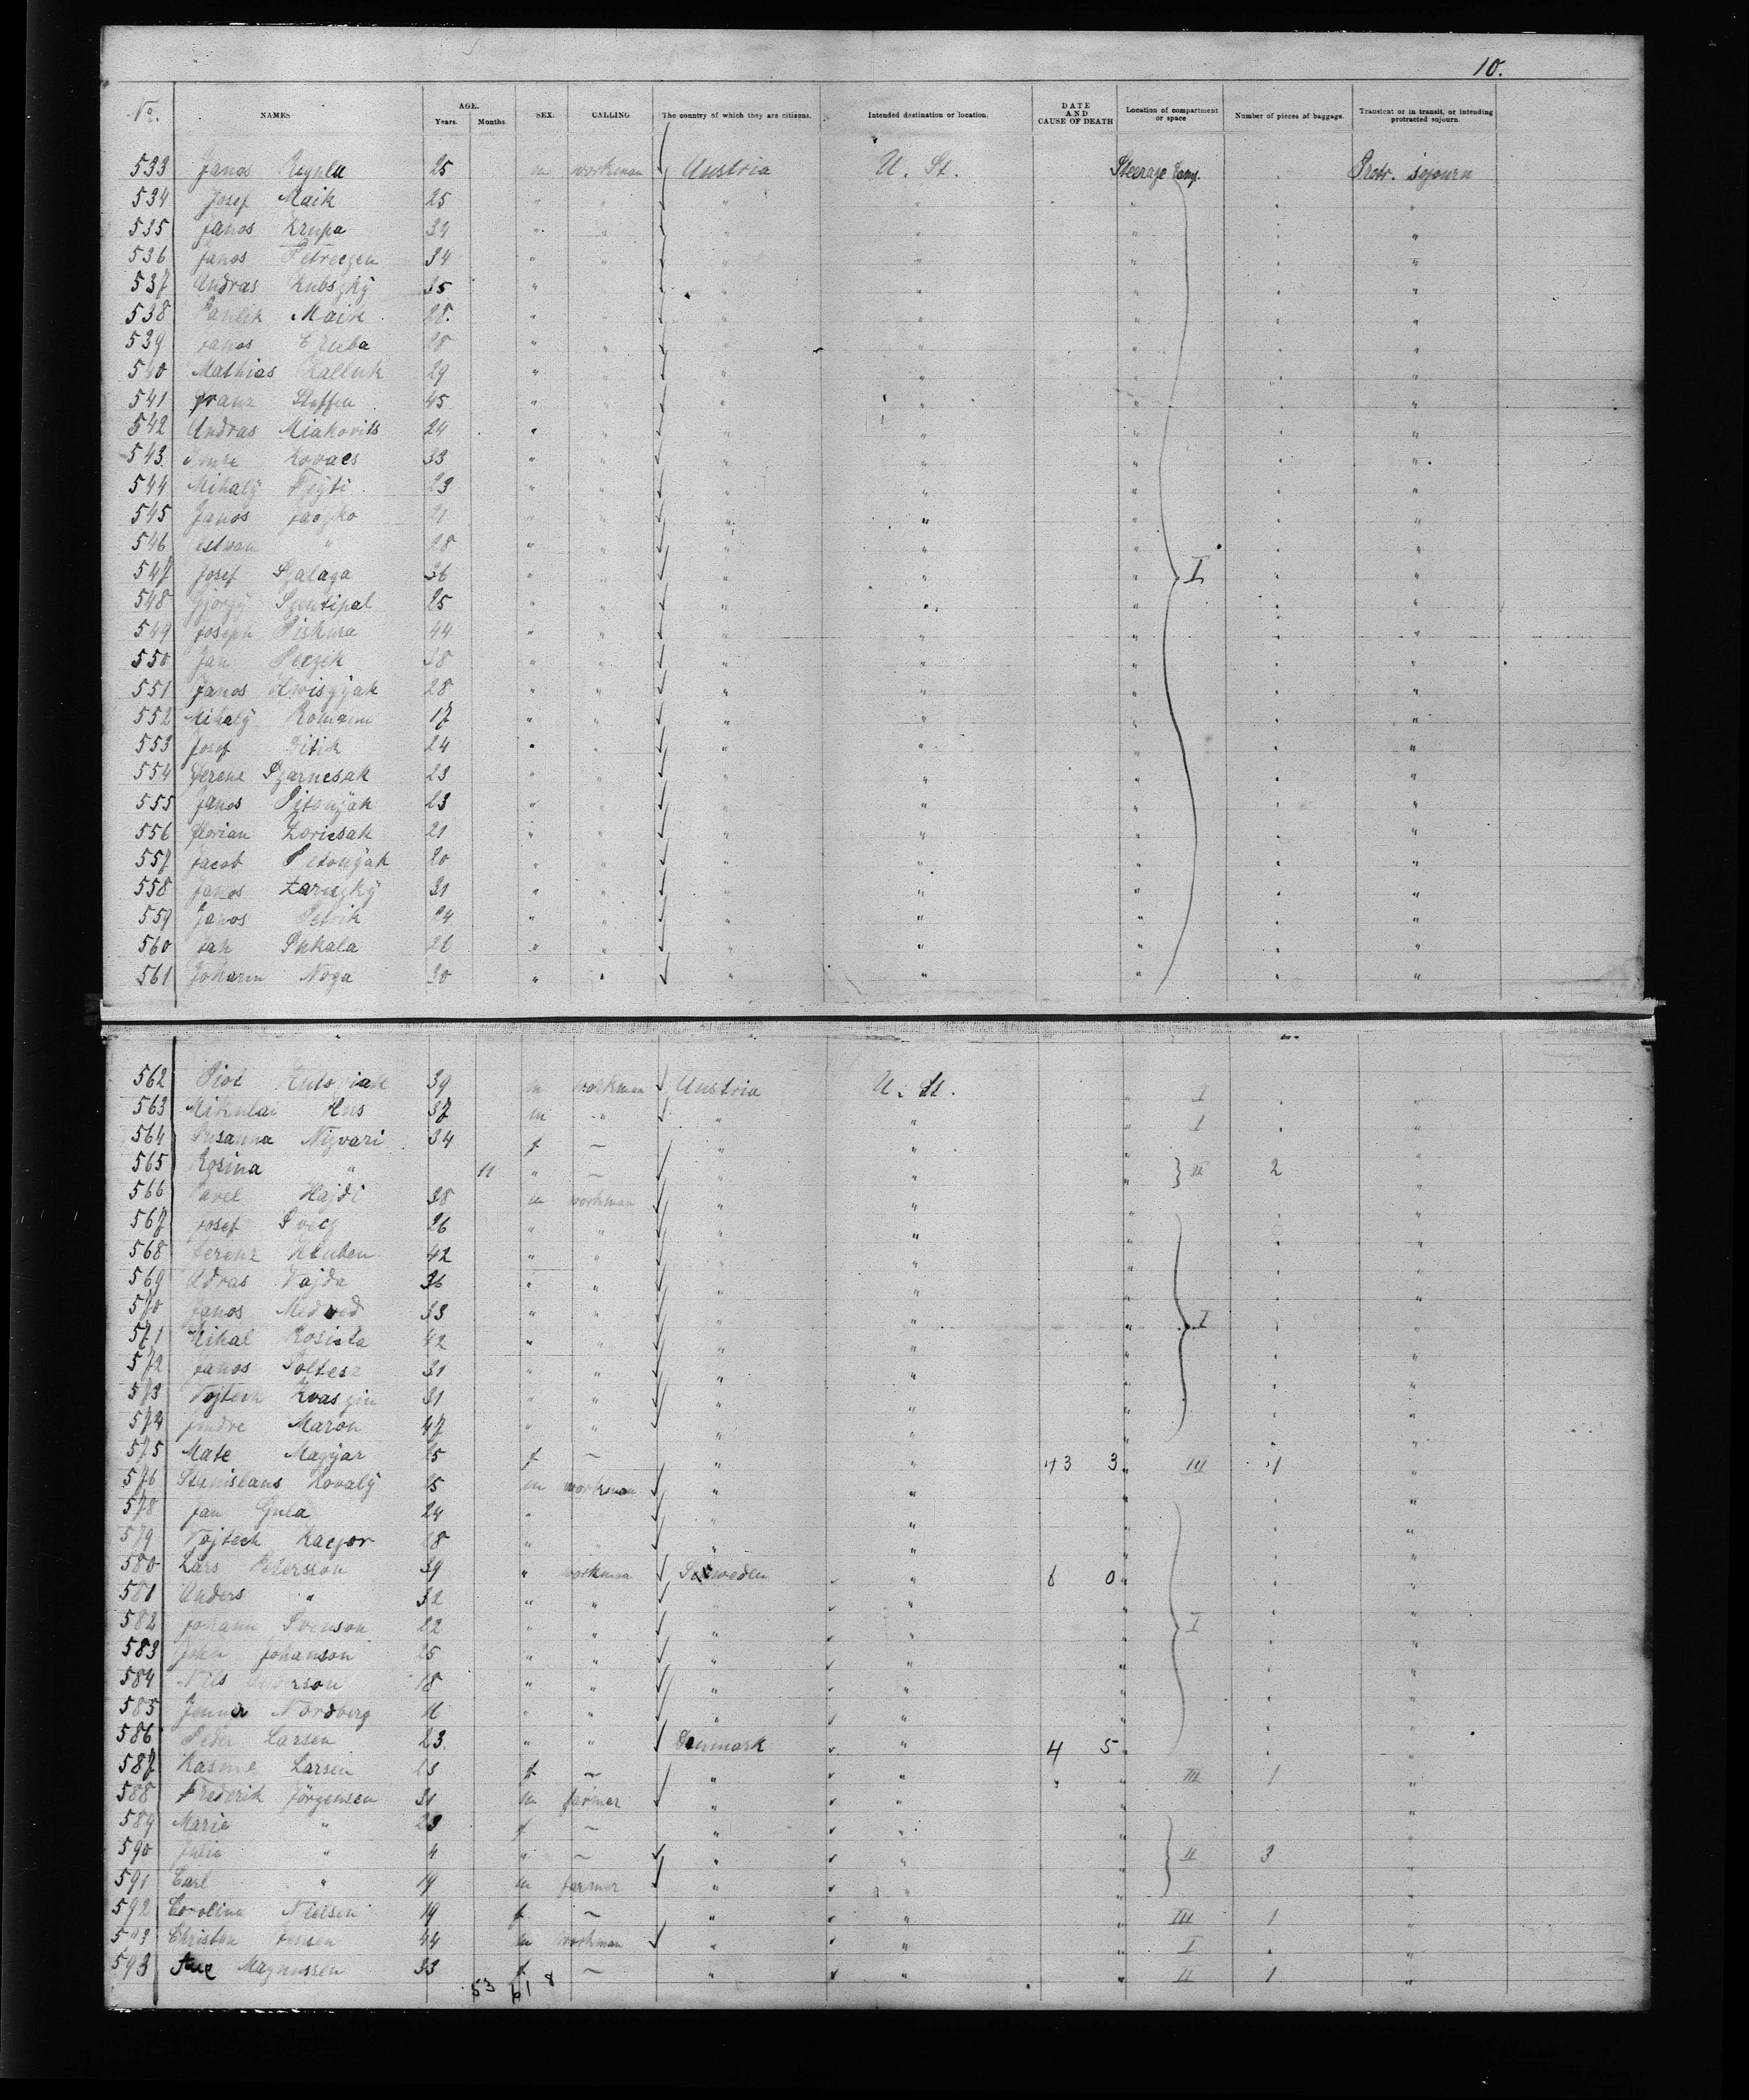 10.
No. NAMES AGE. Years. Months. SEX. CALLING The country of which they are citizens. Intended destination or location. DATE AND CAUSE OF DEATH Location of compartment or space Number of pieces of baggage. Transient or in transit, or intending protracted sojourn.
533 Janos 25 m workman Austria U. St. Steerage Protr. sojourn
534 Josef Maik 25 " " " " " "
535 Janos Krupa 34 " " " " " "
536 Janos Petreczen 34 " " " " " "
537 Andras Kubszky 35 " " " " " "
538 Paulik Maik 28 " " " " " "
539 Janos 28 " " " " " "
540 Mathias 29 " " " " " "
541 Franz Steffen 45 " " " " " "
542 Andras Miakovits 24 " " " " " "
543 Imre Kovacs 33 " " " " " "
544 Mihaly 23 " " " " " "
545 Janos 21 " " " " " "
546 Istvan " 28 " " " " " "
547 Josef Szalaga 36 " " " " " I "
548 György Szentipal 25 " " " " " "
549 Joseph Piskura 44 " " " " " "
550 Jan Peczik 38 " " " " " "
551 Janos 28 " " " " " "
552 Mihaly Romann 17 " " " " " "
553 Josef Ditik 24 " " " " " "
554 Ferenc Szarnesak 23 " " " " " "
555 Janos Pitonyak 23 " " " " " "
556 Florian Loricsak 21 " " " " " "
557 Jacob Pitonyak 20 " " " " " "
558 Janos 31 " " " " " "
559 Janos Petrik 24 " " " " " "
560 Jan 22 " " " " " "
561 Johann Noga 30 " " " " " "
562 39 m workman Austria U. St. " I "
563 Mikulai Hus 37 m " " " " I "
564 Susanna Nizvari 34 f ~ " " " "
565 Rosina " 11 " ~ " " " II 2 "
566 Pavel Hajdi 38 m workman " " " "
567 Josef Svecz 26 " " " " " "
568 Ferenz 42 " " " " " "
569 Adras Vajda 36 " " " " " "
570 Janos Medved 33 " " " " " I "
571 Mihal 42 " " " " " "
572 Janos Soltesz 31 " " " " " "
573 Vojtech 31 " " " " " "
574 Andre Maron 47 " " " " " "
575 Mate Magyar 25 f ~ " " 43 3 " III 1 "
576 Stanislaus Kovaly 25 m workman " " " "
578 Jan Gula 24 " " " " "
579 Vojtech Kaczor 28 " " " " " "
580 Lars Petersson 39 " workman Sweden " 6 0 " "
581 Anders " 32 " " " " " "
582 Johann Svenson 22 " " " " " I "
583 John Johanson 25 " " " " " "
584 Nils 18 " " " " " "
585 Nordberg 16 " " " " " "
586 Peder Larsen 23 " " Denmark " 4 5 " "
587 Larsen f ~ " " " III 1 "
588 Frederik Jörgensen 31 m farmer " " "
589 Marie " 23 f ~ " " " "
590 Julia " 4 " ~ " " " II 3 "
591 Carl " 19 m farmer " " " "
592 Caroline Nielsen 19 f ~ " " " III 1 "
593 Christen Jensen 44 m workman " " " I "
593 Magnussen 33 f ~ " " " II 1 "
53 61 8